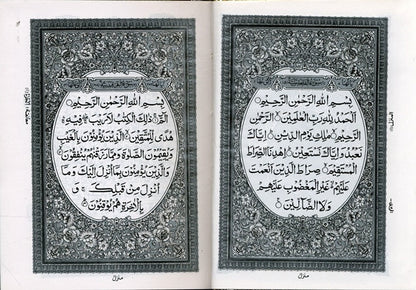 بِسْمِ اللّٰهِ الرَّحْمٰنِ الرَّحِيْمِ
اَلْحَمْدُ لِلّٰهِ رَبِّ الْعٰلَمِيْنَ الرَّحْمٰنِ
الرَّحِيْمِ مٰلِكِ يَوْمِ الدِّيْنِ اِيَّاكَ
نَعْبُدُ وَاِيَّاكَ نَسْتَعِيْنُ اِهْدِنَا الصِّرَاطَ
الْمُسْتَقِيْمَ صِرَاطَ الَّذِيْنَ اَنْعَمْتَ
عَلَيْهِمْ غَيْرِ الْمَغْضُوْبِ عَلَيْهِمْ
وَلَا الضَّآلِّيْنَ
منزل
بِسْمِ اللّٰهِ الرَّحْمٰنِ الرَّحِيْمِ
الٓمّٓ ذٰلِكَ الْكِتٰبُ لَا رَيْبَ فِيْهِ
هُدًى لِّلْمُتَّقِيْنَ الَّذِيْنَ يُؤْمِنُوْنَ بِالْغَيْبِ
وَيُقِيْمُوْنَ الصَّلٰوةَ وَمِمَّا رَزَقْنٰهُمْ يُنْفِقُوْنَ
وَالَّذِيْنَ يُؤْمِنُوْنَ بِمَآ اُنْزِلَ اِلَيْكَ وَمَآ
اُنْزِلَ مِنْ قَبْلِكَ وَ
بِالْاٰخِرَةِ هُمْ يُوْقِنُوْنَ
منزل